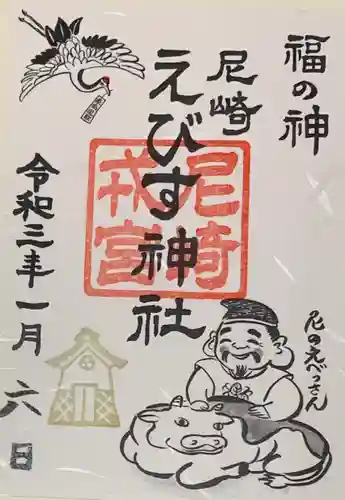 福の神
尼崎
えびす神社
尼崎
戎宮
令和三年一月六日
尼のえべっさん